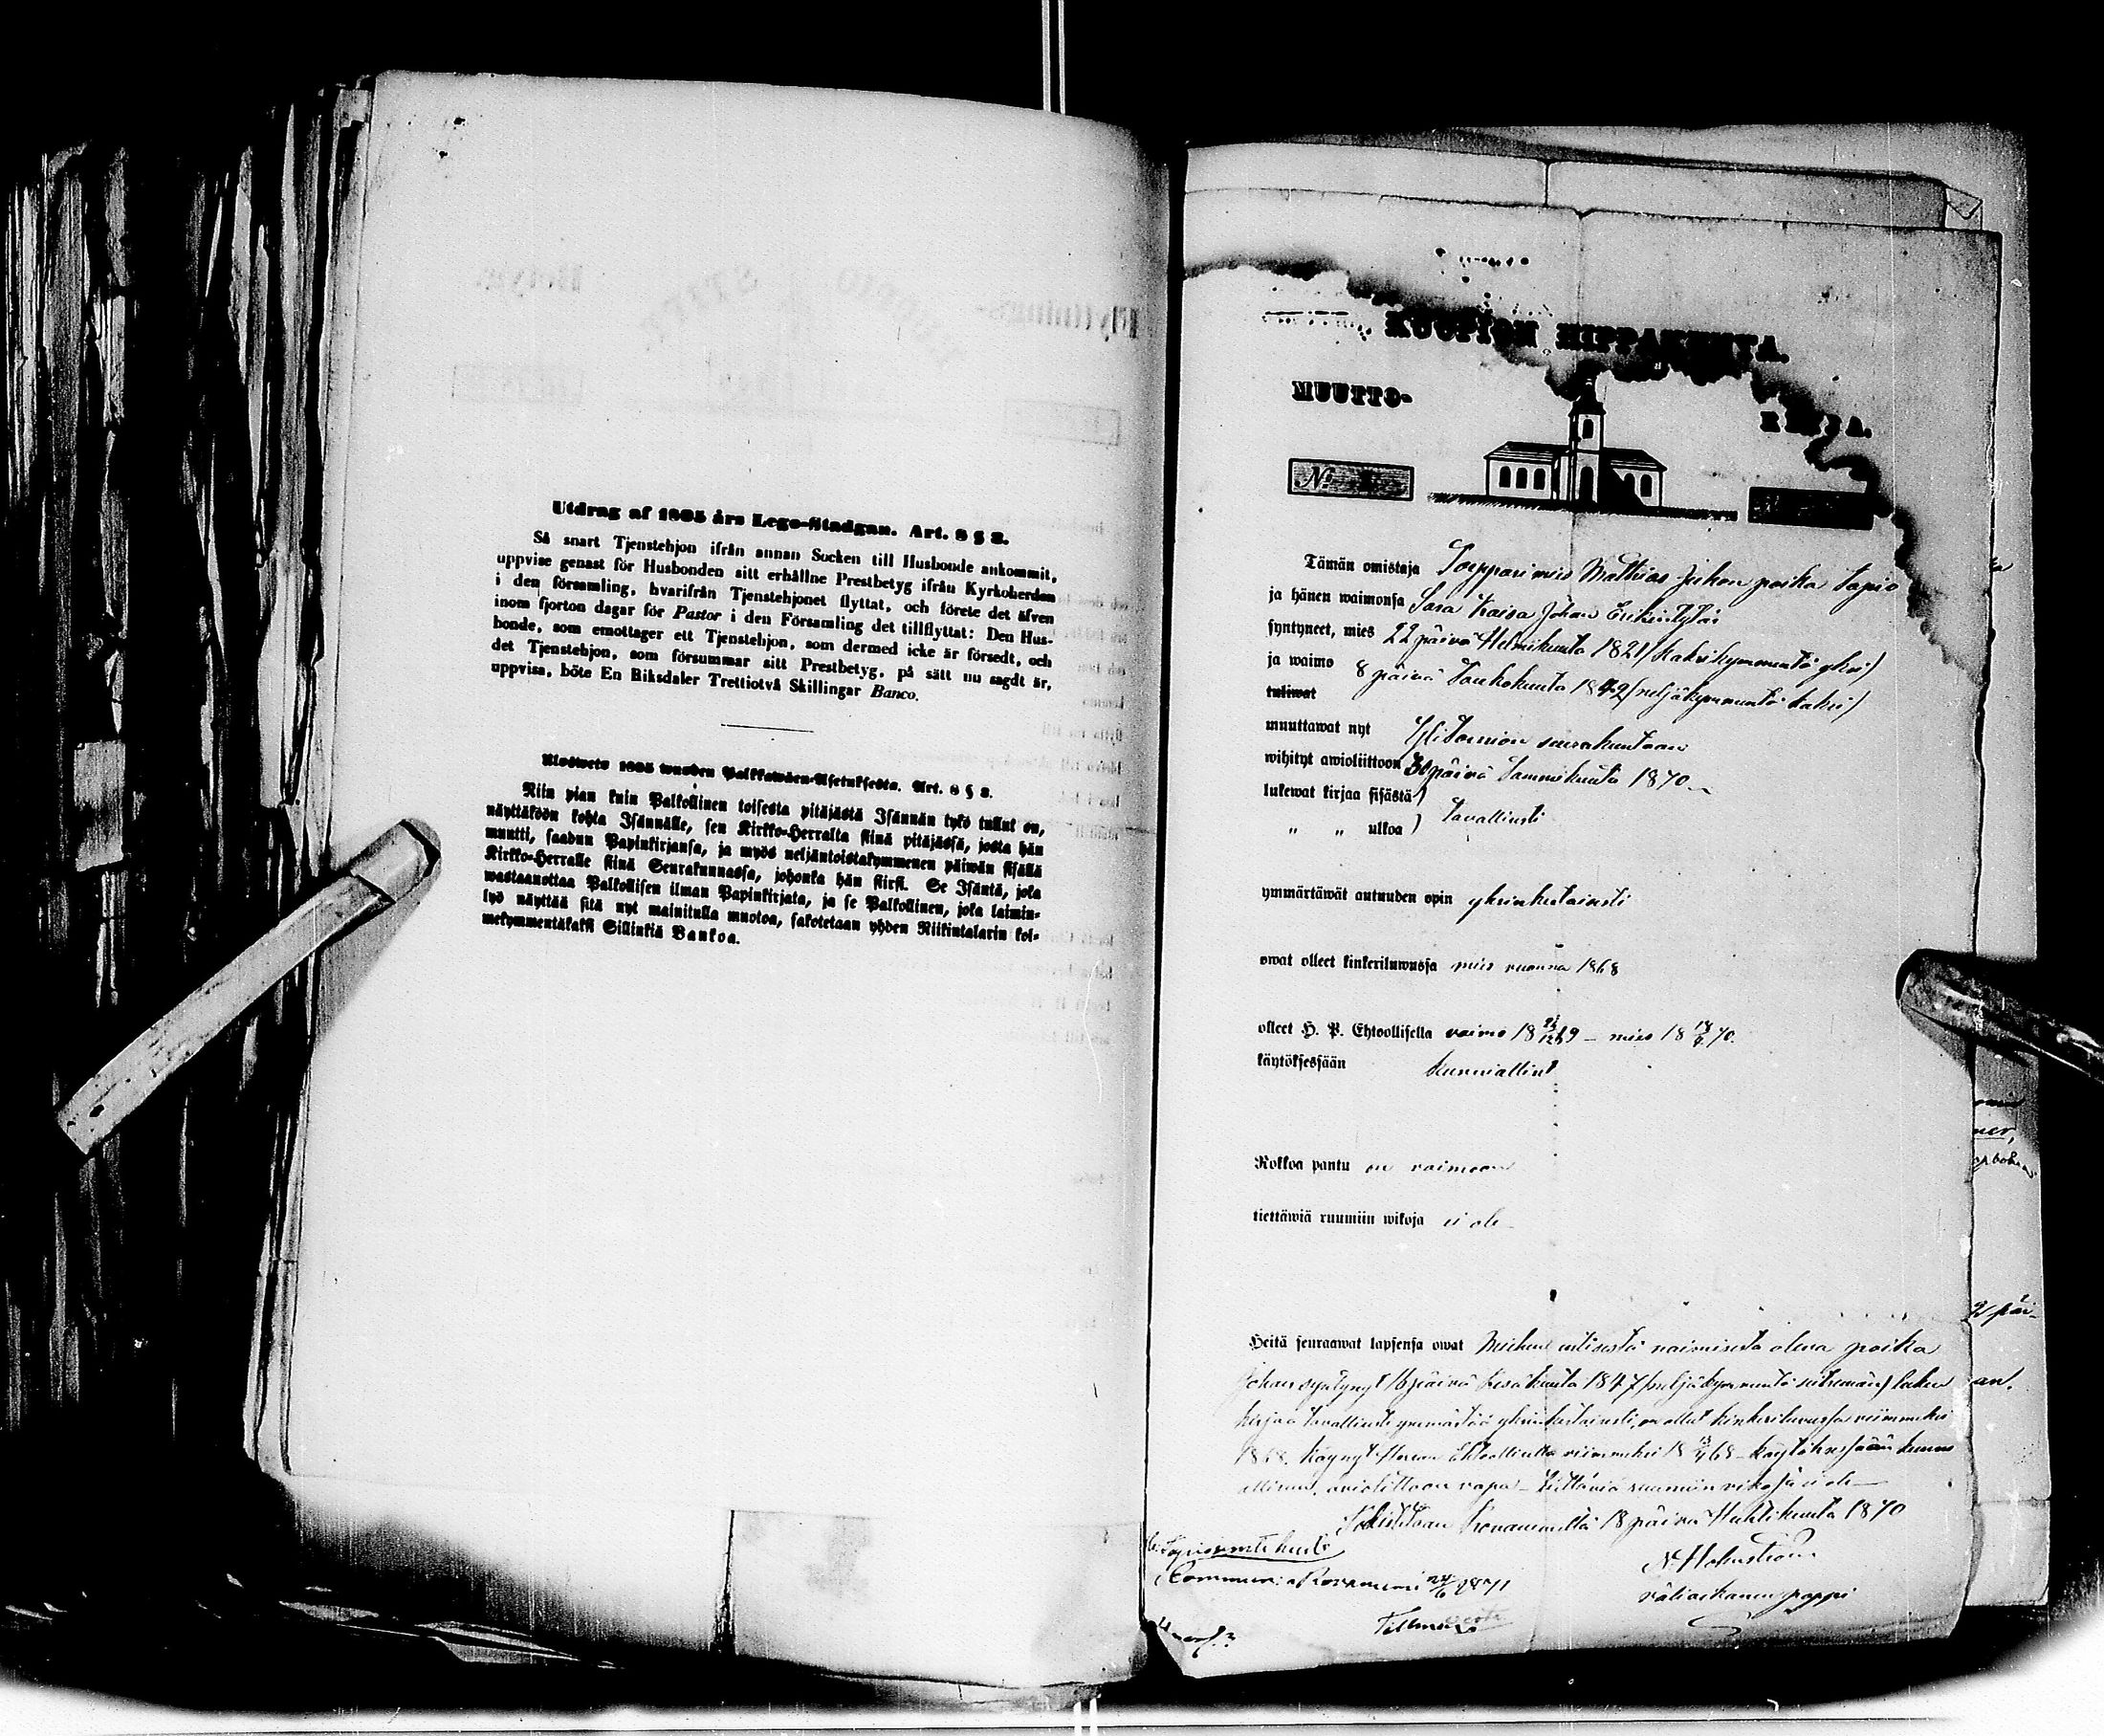 Utdrag af 1805 års Lego-Stadgan. Art. 8 § 2.
Så snart Tjenstehjon ifrån annan Socken till Husbonde ankommit,
uppvise genast för Husbonden sitt erhållne Prestbetyg ifrån Kyrkoherden
i den församling, hvarifrån Tjenstehjonet flyttat, och förete det äfven
inom fjorton dagar för Pastor i den Församling det tillflyttat: Den Hus-
bonde, som emottager ett Tjenstehjon, som dermed icke är försedt, och
det Tjenstehjon, som försummar sitt Prestbetyg, på sätt nu sagdt är,
uppvisa, böte En Riksdaler Trettiotvå Skillingar Banco.
Ulosweto 1805 wuoden Palkkawäen-Asetuksesta. Art. 8 § 2.
Niin pian kuin Palkollinen toisesta pitäjästä Isännän tykö tullut on,
näyttäköön kohta Isännälle, sen Kirkko-Herralta siinä pitäjässä, josta hän
muutti, saadun Papinkirjansa, ja myös neljäntoistakymmenen päiwän sisällä
Kirkko-Herralle siinä Seurakunnassa, johonka hän siirsi. Se Isäntä, joka
wastaanottaa Palkollisen ilman Papinkirjata, ja se Palkollinen, joka laimin-
lyö näyttää sitä nyt mainitulla muotoa, sakotetaan yhden Riikintalarin kol-
mekymmentäkaksi Sillinkiä Bankoa.
KUOPION HIPPAKUNTA.
MUUTTO-
KIRJA.
No
Tämän omistaja Torpparimies Mathias Juhon poika Tapio
ja hänen waimonsa Sara Kaisa Johan Erikintytär
syntyneet, mies 22 päivä Helmikuuta 1821 (kaksikymmentä yksi)
ja waimo 8 päivä Toukokuuta 1842 (neljäkymmentä kaksi)
tuliwat
muuttawat nyt Ylitornion seurakuntaan
wihityt awioliittoon 30 päivä Tammikuuta 1870
lukewat kirjaa sisästä )
" " ulkoa ) tavallisesti
ymmärtäwät autuuden opin yksinkertaisesti
owat olleet kinkeriluwussa mies vuonna 1868
olleet H. P. Ehtoollisella vaimo 18 26/12 69 – mies 18 18/4 70.
käytöksessään kunnialliset
Rokkoa pantu on vaimoon
tiettäwiä ruumiin wikoja ei ole
Heitä seuraawat lapsensa owat Miehen entisestä naimisesta oleva poika
Johan syntynyt 16 päivä Kesäkuuta 1847 (neljäkymmentä seitsemän) lukee
kirjaa tavallisesti ymmärtää yksinkertaisesti, on ollut kinkeriluvussa viimmeksi
1868. Käynyt Herran Ehtoollisella viimmeksi 18 68 – käytöksessään kunni
allinen, avioliittoon vapa – tiettäviä ruumiin vikoja ei ole –
Rovaniemellä 18 päivä Huhtikuuta 1870
N. Holmström
väliaikanen pappi
Rovaniemi 24/6 1871